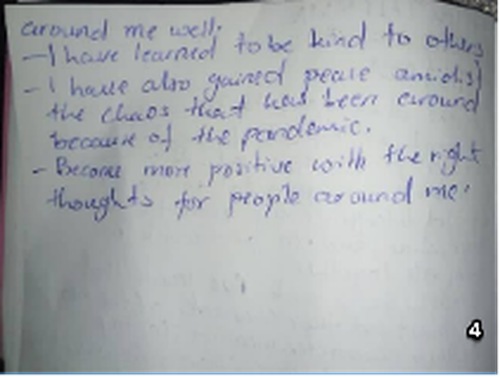 around me well.
- I have learned to be kind to others
- I have also gained peace amidst
the chaos that has been around
because of the pandemic.
- Become more positive with the right
thoughts for people around me.
4